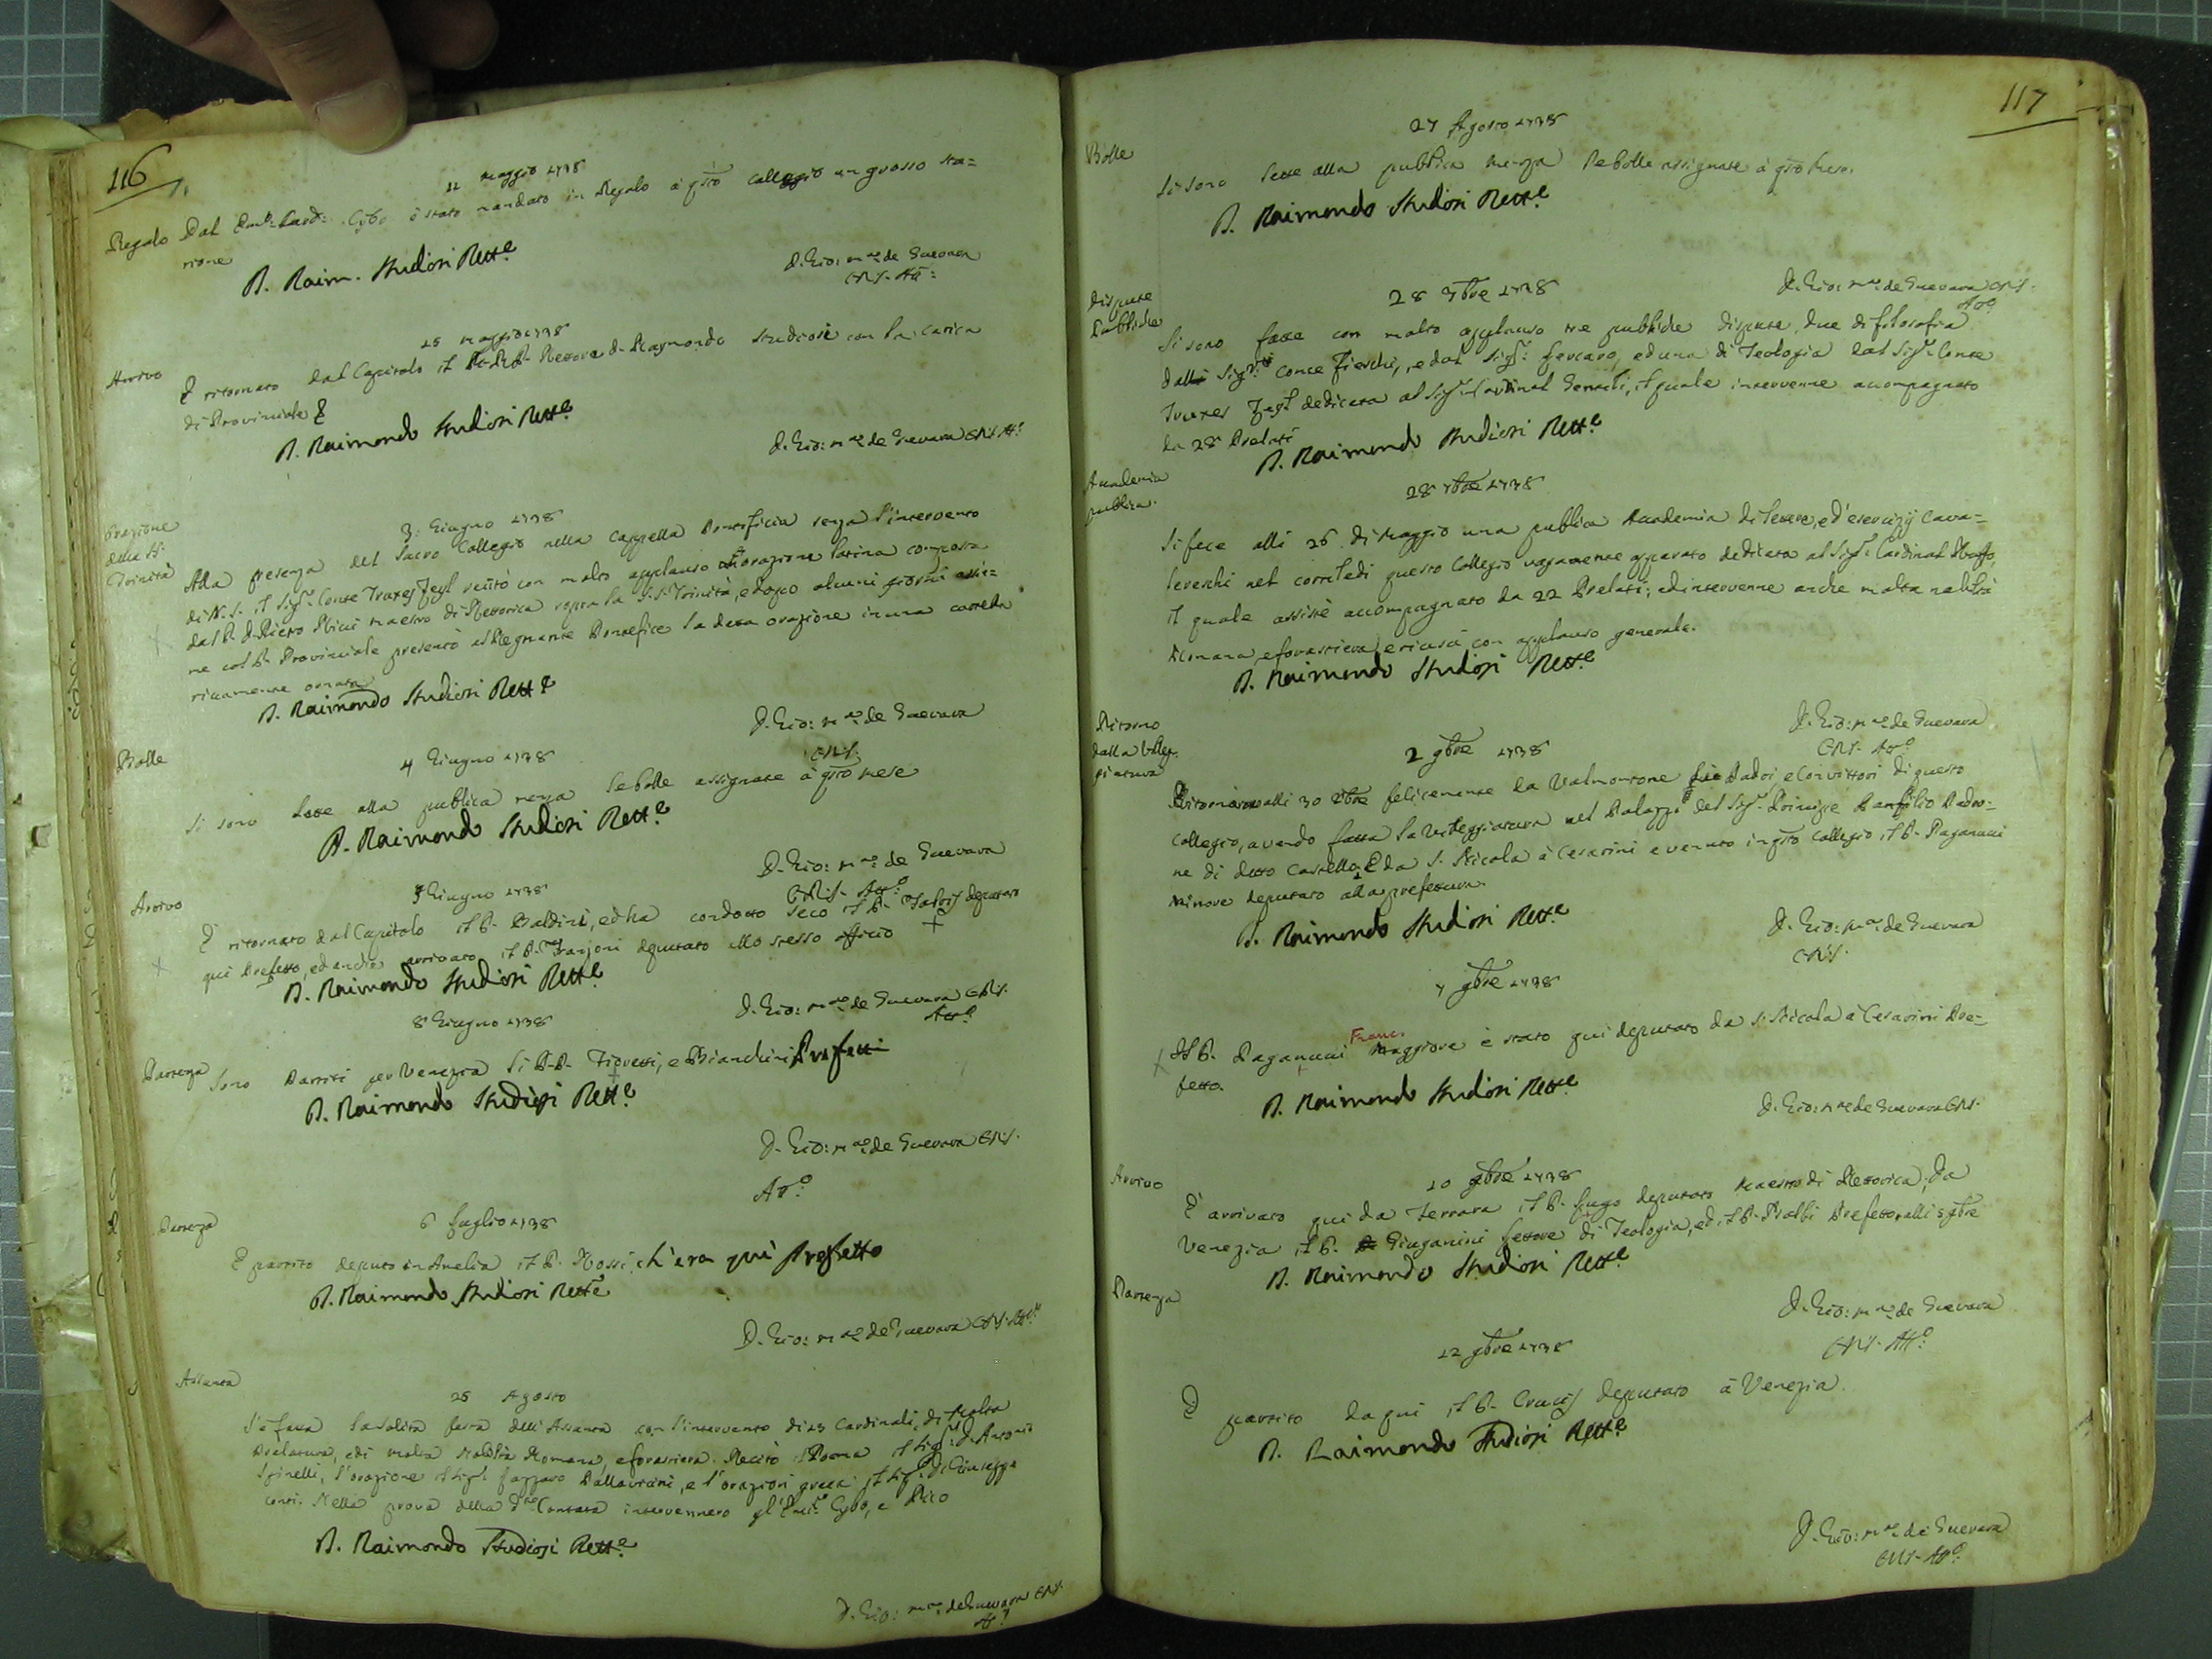 116
11 Maggio 1738
Regalo Dal Em.º Card: Cybo è stato mandato in Regalo à q̃sto Collegio un grosso sto=
rione
D. Raim. Studiosi Rett.e
D. Gio: M.ª de Guevara
CRS. Att:
25 Maggio 1738
Arrivo
È ritornato dal Capitolo il Rettore D. Raymondo Studiosi con la carica
di Provinciale
D. Raimondo Studiosi Rett.e
D. Gio: M.ª de Guevara CRS Att.º
Orazione
della SS.
Trinità
3: Giugno 1738
Alla presenza del Sacro Collegio nella Cappella Pontificia senza l'intervento
di N.S. il Sig.r Conte Truxes Zeyl recitò con molto applauso orazione latina composta
dal P. D. Pietro maestro di Rettorica sopra la SS. Trinità, e dopo alcuni giorni assie=
me col P. Provinciale presentò al Regnante Pontefice la detta orazione in una cartella
riccamente ornata
D. Raimondo Studiosi Rett.e
D. Gio: M.ª de Guevara
CRS.
Bolle
4 Giugno 1738
Si sono lette alla publica mensa le bolle assignate à q̃sto mese
D. Raimondo Studiosi Rett.e
D. Gio: M.ª de Guevara
CRS. Att.º
Arrivo
Giugno 1738
È ritornato dal Capitolo il P. Baldini, ed ha condotto seco il P. deputato
qui Prefetto, ed anche arrivato il P. Franzoni deputato allo stesso officio
D. Raimondo Studiosi Rett.e
D. Gio: M.ª de Guevara CRS.
Att.º
8 Giugno 1738
Partenza Sono Partiti per Venezia li P.P. Fioretti, e Bianchini Prefetti
D. Raimondo Studiosi Rett.e
D. Gio: M.ª de Guevara CRS.
Att.º
Partenza
6 Luglio 1738
È partito deputo in Amelia il P. Rossi ch'era quì Prefetto
D. Raimondo Studiosi Rett.e
D. Gio: M.ª de Guevara CRS. Att.º
Assunta
25 Agosto
S'è fatta la solita festa dell'Assunta con l'intervento di 13 Cardinali, di molta
Prelatura, edi molta Nobiltà Romana, e forastiera. Recitò il Poema il Sig.r D. Antonio
Spinelli, l'orazione il Sig.r Lazzaro Pallavicini, e l'orazion greca il Sig.r D. Giuseppe
Conti. Nella prova della Cantata intervennero gl'Em.i Cybo, e Pico
D. Raimondo Studiosi Rett.e
D. Gio: M.ª de Guevara CRS.
Att.º
117
27 Agosto 1738
Bolle
Si sono lette alla publica mensa le bolle assignate à q̃sto mese.
D. Raimondo Studiosi Rett.e
D. Gio: M.ª de Guevara CRS.
Att.º
Dispute
Publiche
28 7bre 1738
Si sono fatte con molto applauso tre publiche dispute, due di filosofia
dalli Sig.ri Conte Fieschi, e dal Sig.r Lercaro, ed una di Teologia dal Sig.r Conte
Truxes Zeyl dedicata al Sig.r Cardinal Gentili, il quale intervenne accompagnato
da 28 Prelati
D. Raimondo Studiosi Rett.e
Academia
publica.
28 7bre 1738
Si fece alli 26 di Maggio una publica Academia di lettere, ed'esercizij cava=
lereschi nel cortile di questo Collegio vagamente apparato dedicata al Sig.r Cardinal
il quale assistè accompagnato da 22 Prelati; ed intervenne anche molta nobiltà
Romana, e forastiera, e riuscì con applauso generale.
D. Raimondo Studiosi Rett.e
D. Gio: M.ª de Guevara
CRS. Att.º
Ritorno
dalla Villeg-
giatura
2 9bre 1738
Ritornarono alli 30 8bre felicemente da Valmontone Padri, e Convittori di questo
Collegio, avendo fatta la villeggiatura nel Palazzo del Sig.r Principe Panfilio Padro=
ne di detto Castello. E da S. Nicola à Cesarini e venuto in q̃sto Collegio il P. Paganucci
Minore deputato alla prefettura.
D. Raimondo Studiosi Rett.e
D. Gio: M.ª de Guevara
CRS.
7 9bre 1738
Il P. Paganucci Franc. Maggiore è stato qui deputato da S. Nicola à Cesarini Pre=
fetto.
D. Raimondo Studiosi Rett.e
D. Gio: M.ª de Guevara CRS.
Arrivo
10 9bre 1738
È arrivato qui da Ferrara il P. Lugo deputato Maestro di Rettorica; Da
Venezia il P. Giuganini Lettore di Teologia, ed il P. Balbi Prefetto alli 5 9bre
D. Raimondo Studiosi Rett.e
D. Gio: M.ª de Guevara
CRS. Att.º
Partenza
12 9bre 1738
È partito da qui il P. Crucis deputato à Venezia.
D. Raimondo Studiosi Rett.e
D. Gio: M.ª de Guevara
CRS. Att.º